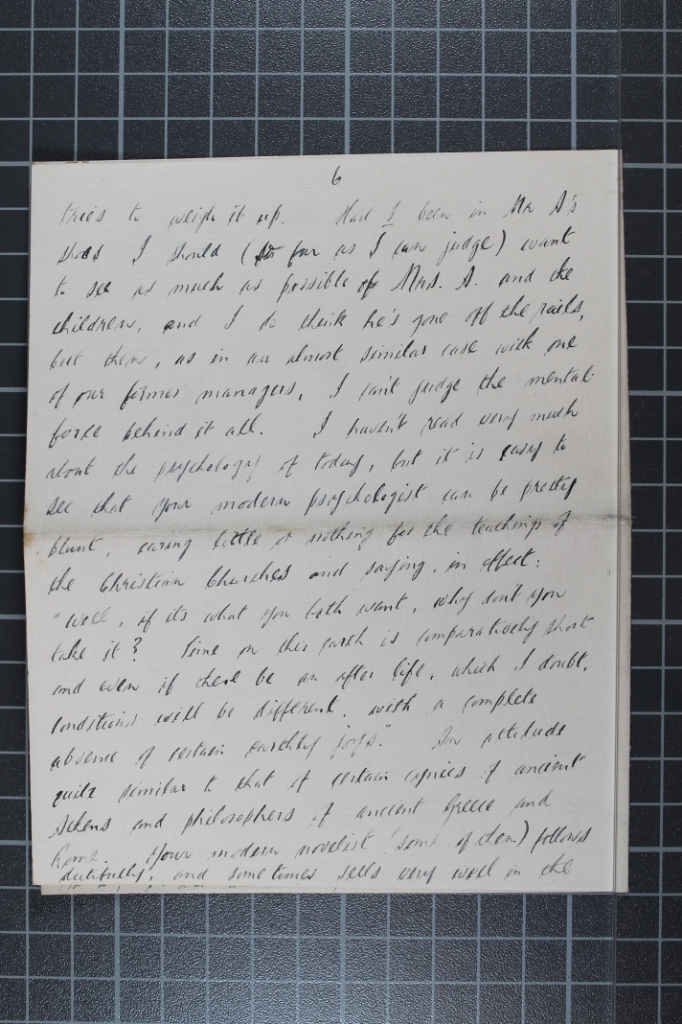 6
tries to weigh it up. Had I been in Mr A's
shoes I should (so far as I can judge) want
to see as much as possible of Mrs. A. and the
children, and I do think he's gone off the rails,
but then, as in an almost similar case with one
of our former managers, I can't judge the mental
force behind it all. I haven't read very much
about the psychology of today, but it is easy to
see that your modern psychologist can be pretty
blunt, caring little or nothing for the teachings of
the Christian Churches and saying, in effect:
"Well, if it's what you both want, why don't you
take it? Time on this earth is comparatively short
and even if there be an after life, which I doubt,
conditions will be different, with a complete
absence of certain earthly joys." An attitude
quite similar to that of certain cynics of ancient
Athens and philosophers of ancient Greece and
Rome. Your modern novelist (some of them) follows
dutifully, and sometimes sells very well in the